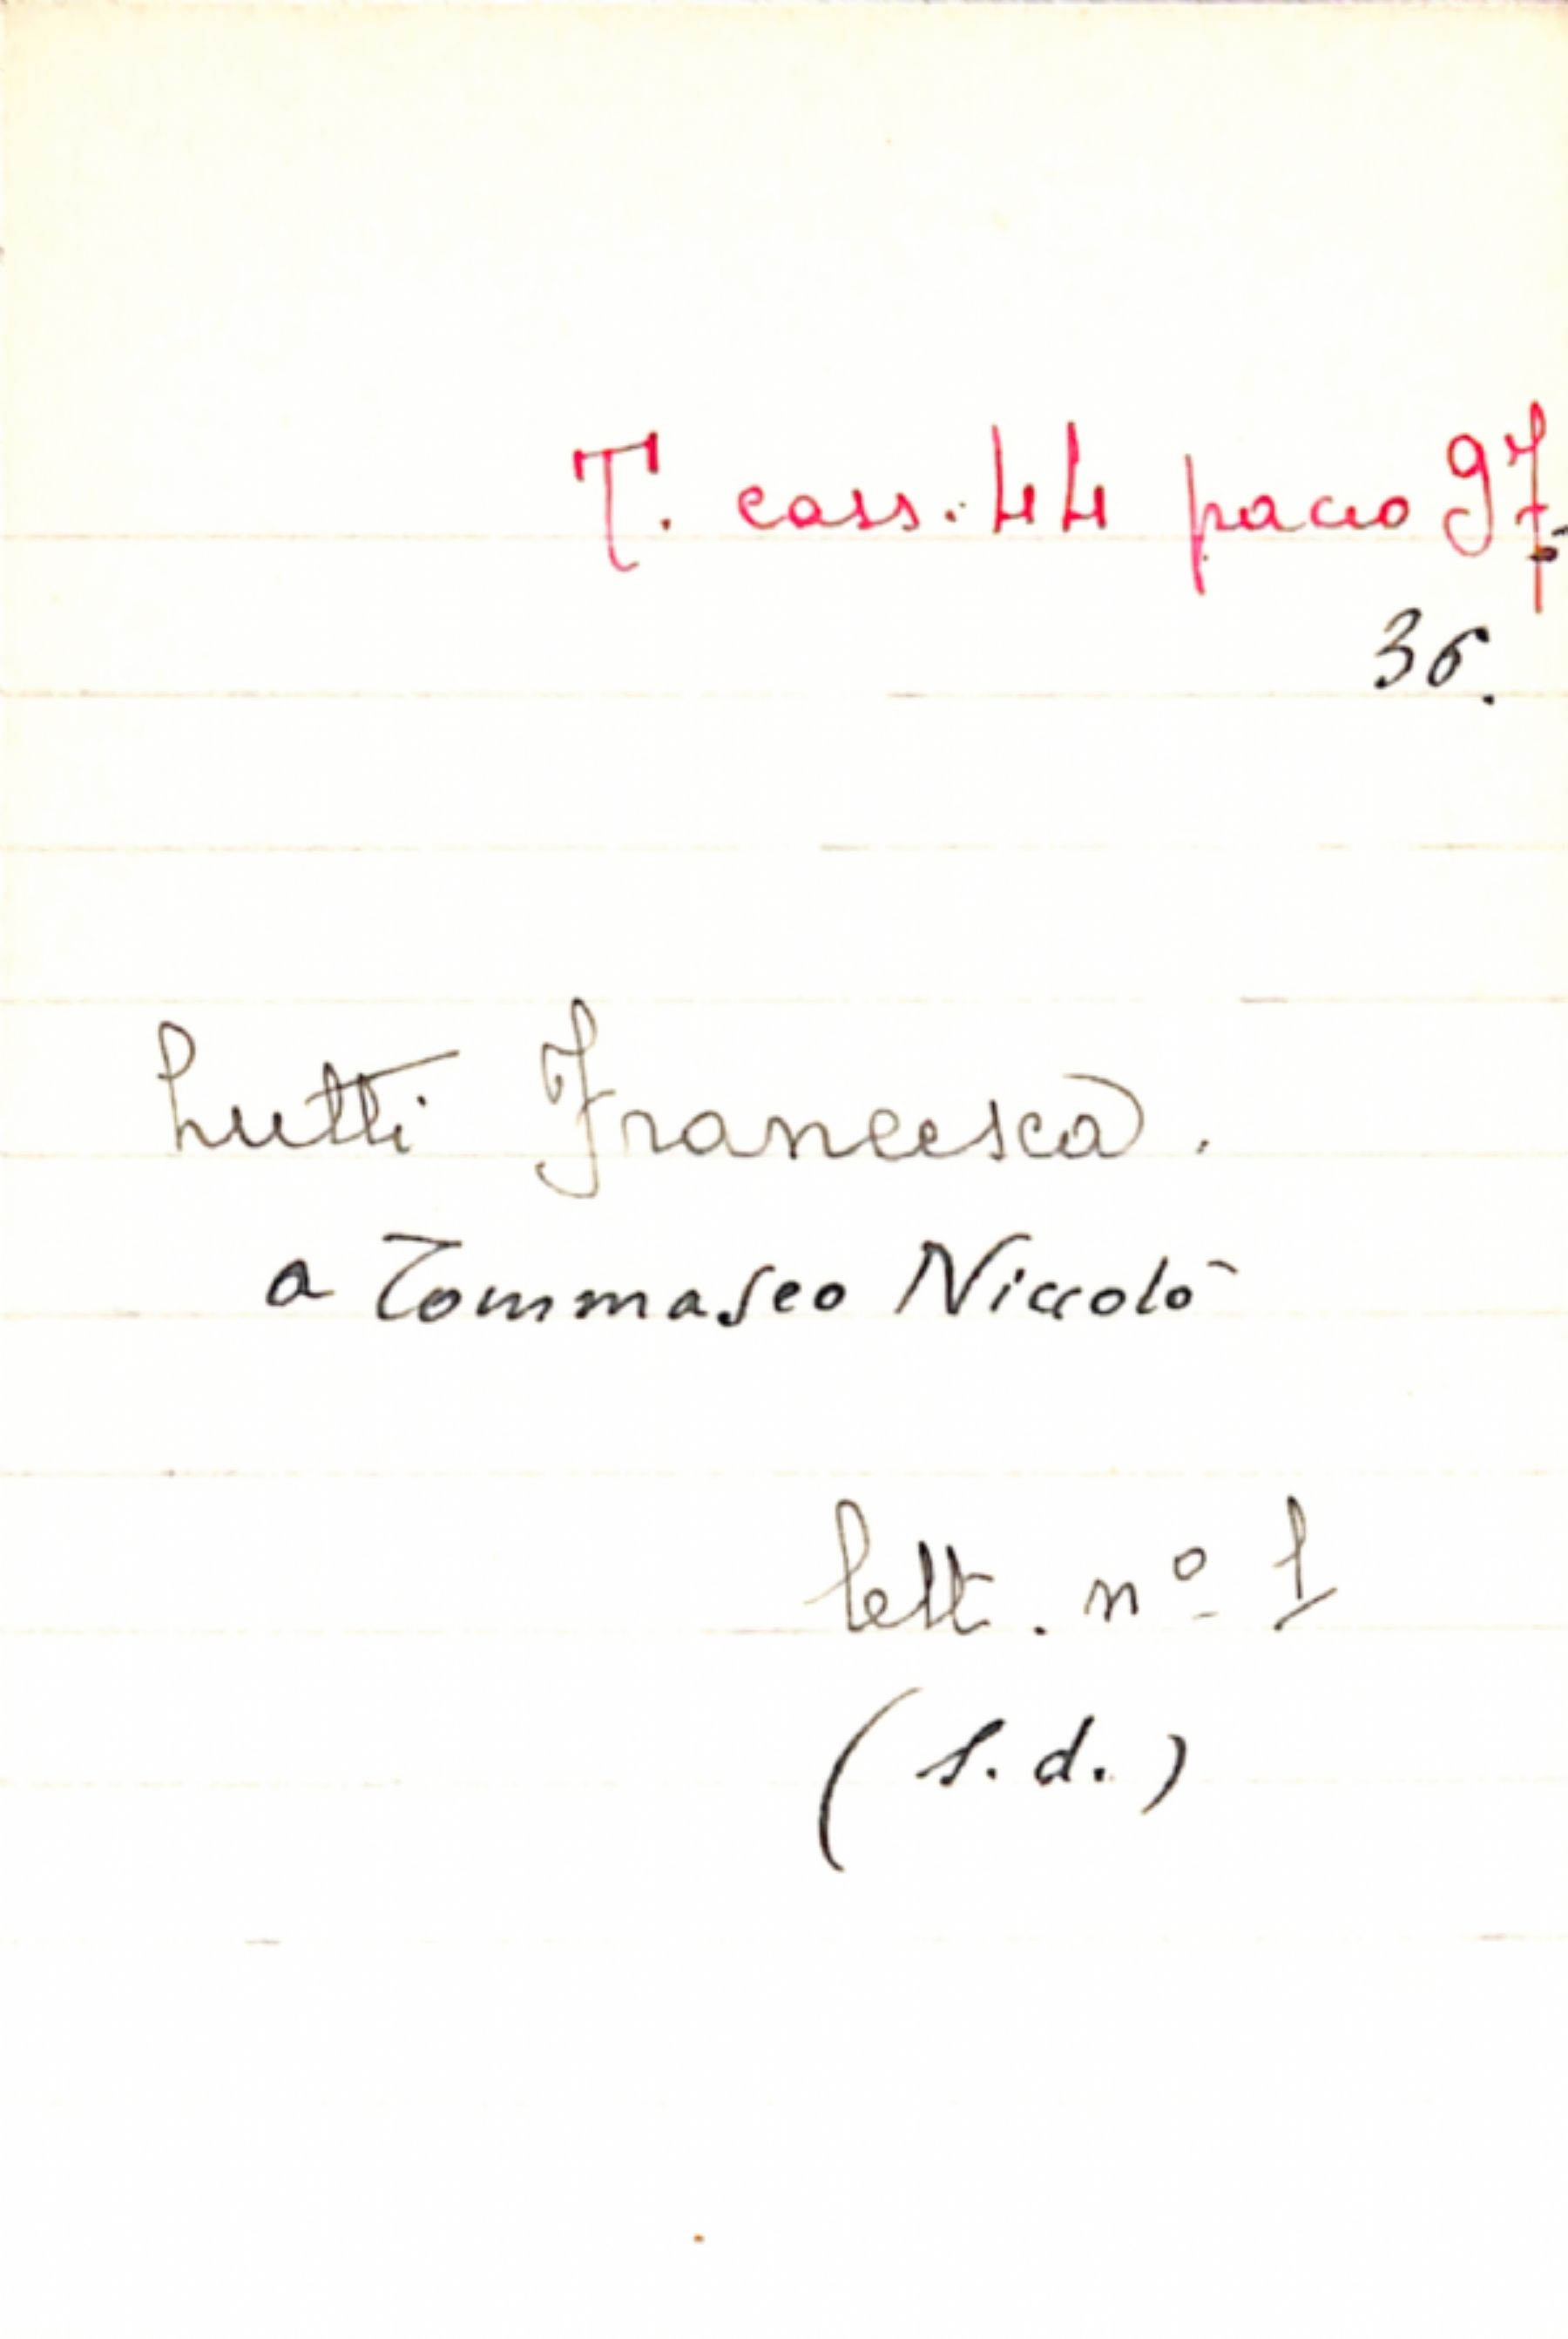 T. cass. 44 pacco 97.
36.
Lutti Francesca.
a Tommaseo Niccolò
lett. nº 1
(s.d.)